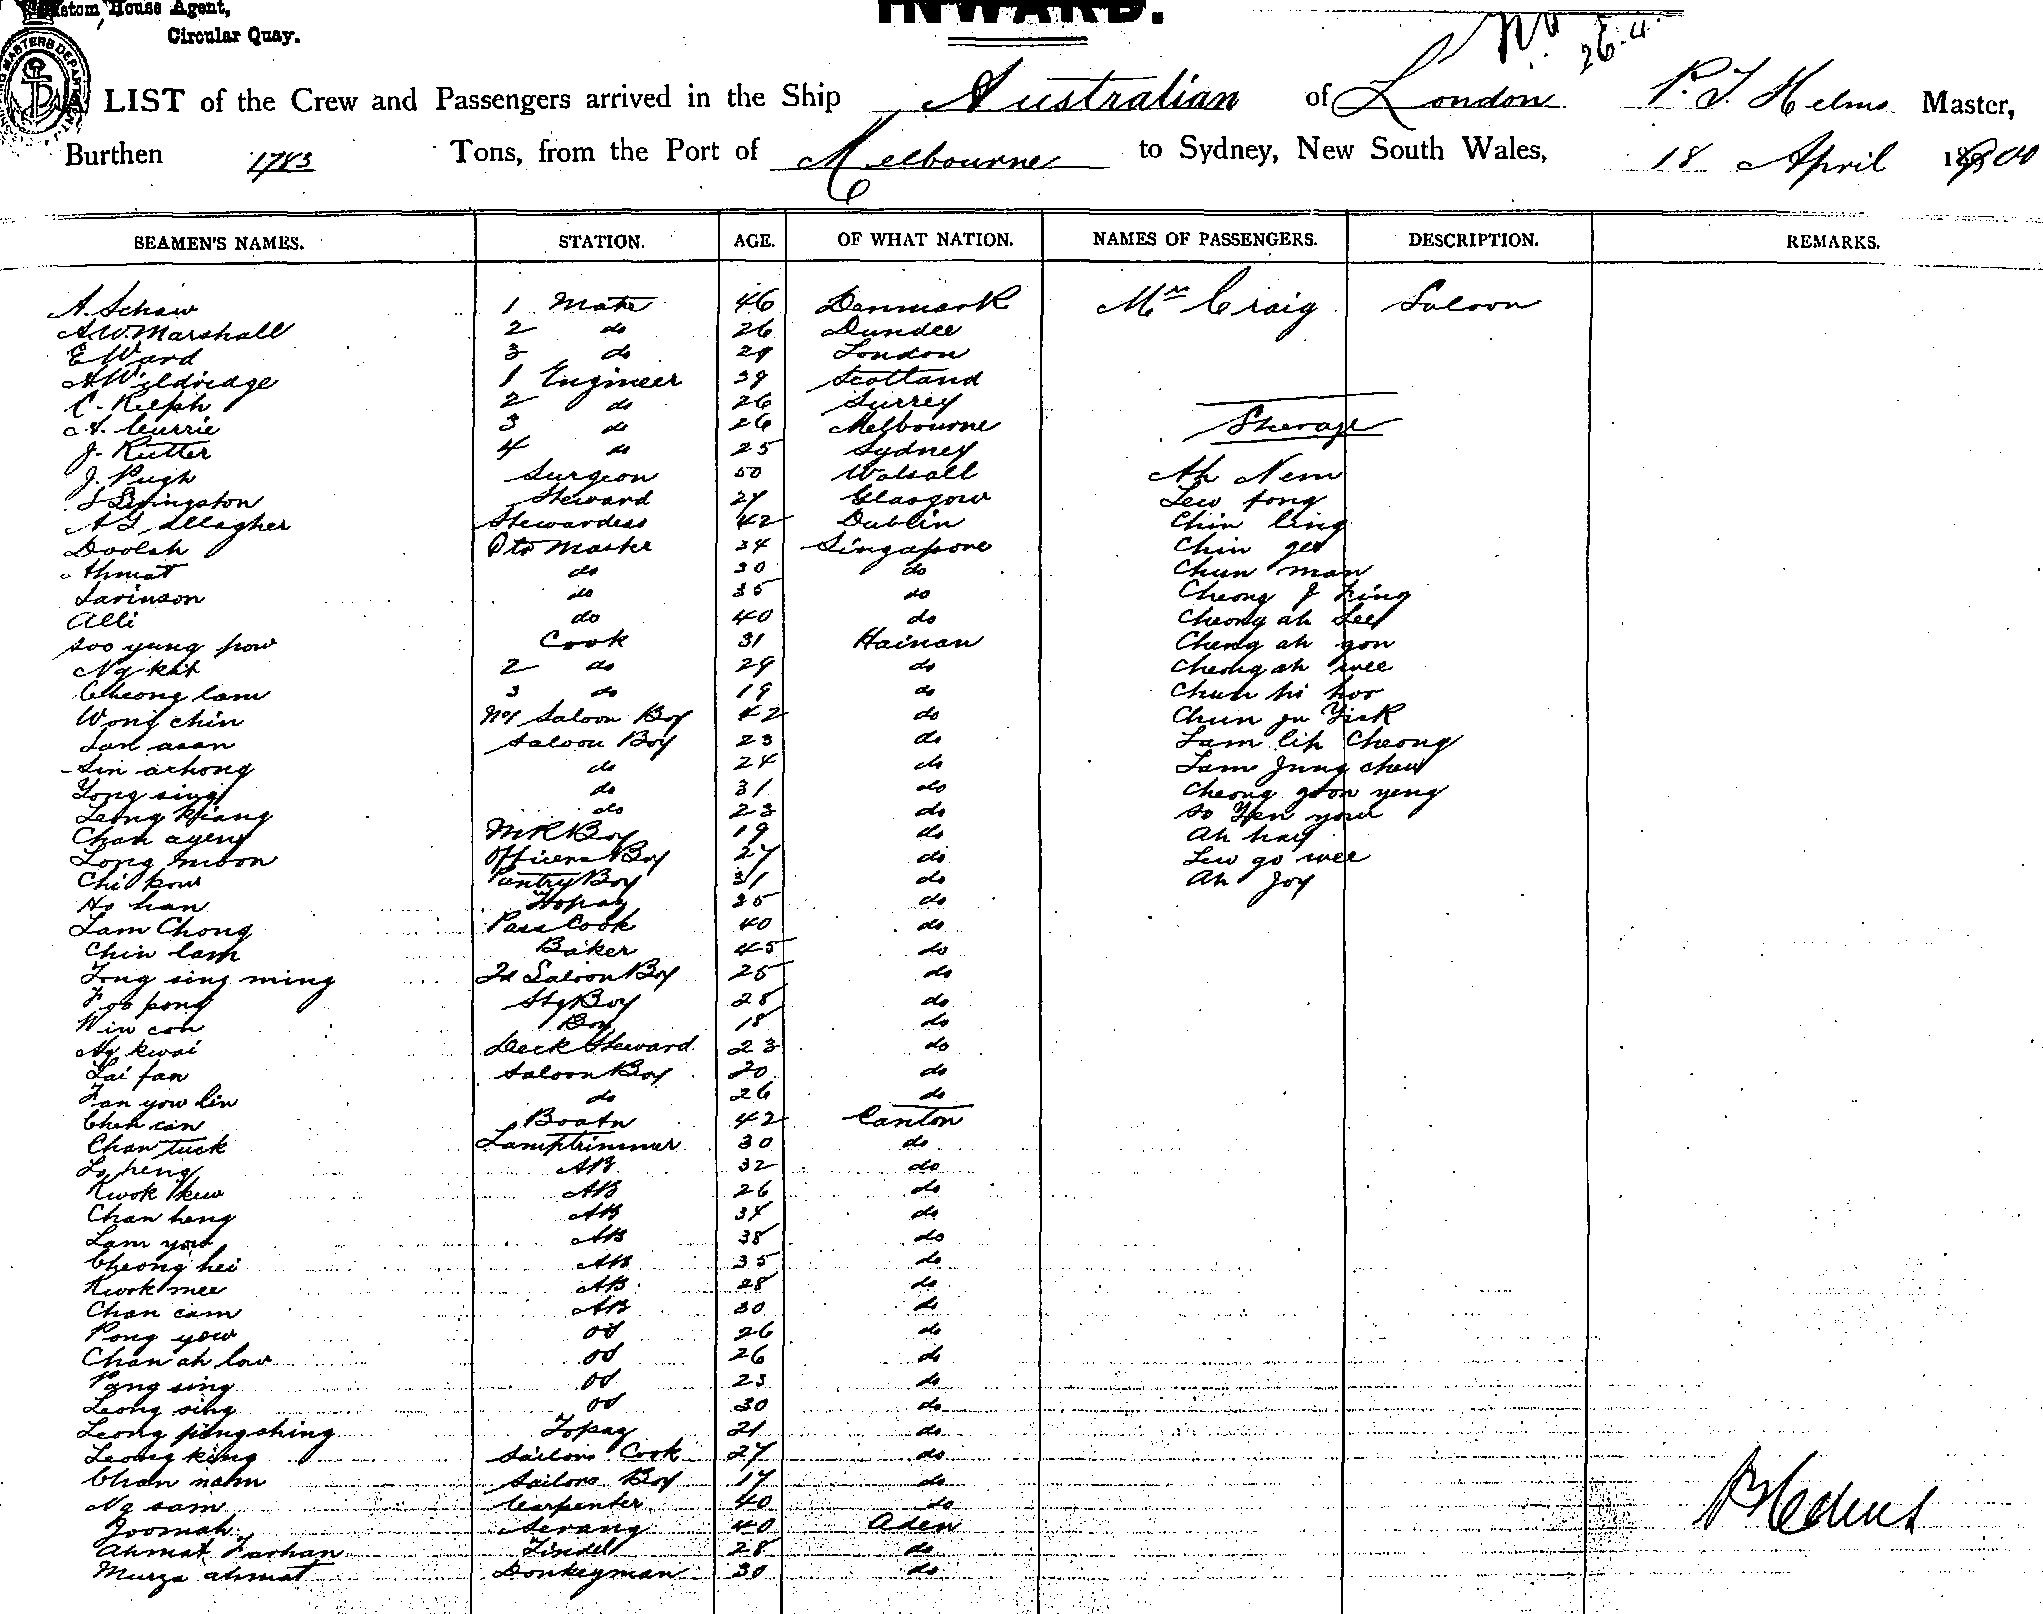 Custom House Agent,
Circular Quay.
INWARD.
No
26.4.
A LIST of the Crew and Passengers arrived in the Ship Australian of London P. T. Helms Master,
Burthen 1783 Tons, from the Port of Melbourne to Sydney, New South Wales, 18 April 1900
SEAMEN'S NAMES. STATION. AGE. OF WHAT NATION. NAMES OF PASSENGERS. DESCRIPTION. REMARKS.
A. Schaw 1 Mate 46 Denmark Mrs Craig Saloon
A.W. Marshall 2 do 26 Dundee
E Ward 3 do 29 London
A Wildridge 1 Engineer 39 Scotland
C. Relph 2 do 26 Surrey
A. Currie 3 do 26 Melbourne Steerage
J. Rutter 4 do 25 Sydney
J. Pugh Surgeon 50 Walsall Ah Nem
J Livingston Steward 27 Glasgow Lew fong
A Gallagher Stewardess 42 Dublin Chin ling
Doolah Qtr Master 34 Singapore Chin gee
Ahmat do 30 do Chun man
Sarinson do 35 do Cheong J King
Alli do 40 do Cheong ah Lee
soo yung pow Cook 31 Hainan Cheng ah yon
Ng kat 2 do 29 do Cheong ah wee
Cheong lam 3 do 19 do Chun hi hoo
Wong chin No1 Saloon Boy 42 do Chun ju Yick
San asan Saloon Boy 23 do Lam lip Cheong
Sin achong do 24 do Lam Jung chew
Yong sing do 31 do Cheong goon yeng
Leong kiang do 23 do so Yen youn
Chan ayeny M R Boy 19 do Ah hay
Long moon Officers Boy 27 do Lew go wee
Chi kow Pantry Boy 31 do Ah Joy
Ho han Topay 35 do
Lam Chong Pass Cook 40 do
Chin lam Baker 45 do
Fong sing ming 2d Saloon Boy 25 do
Foo pong Stg Boy 28 do
Win con Boy 18 do
Ng kwai Deck Steward 23 do
Lai fan Saloon Boy 20 do
Fan yow lin do 26 do
Chen can Boatn 42 Canton
Chan tuck Lamptrimmer 30 do
Lo heng AB 32 do
Kwok kew AB 26 do
Chan heng AB 34 do
Lam yow AB 38 do
Cheong hei AB 35 do
Kwok mee AB 28 do
Chan cam AB 30 do
Pong yow OS 26 do
Chan ah low OS 26 do
Pang sing OS 23 do
Leong sing OS 30 do
Leong ping shing Topay 21 do
Leong king Sailors Cook 27 do
Chan nam Sailors Boy 17 do
Ng sam Carpenter 40 do
Joomah Serang 40 Aden
Ahmat Farhan Tindel 28 do
Murza ahmat Donkeyman 30 do
P T Helms